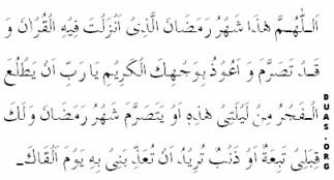 اَللّٰهُمَّ هٰذَا شَهْرُ رَمَضَانَ الَّذِىْ اَنْزَلْتَ فِيْهِ الْقُرْاٰنَ وَ
قَدْ تَصَرَّمَ وَ اَعُوْذُ بِوَجْهِكَ الْكَرِيْمِ يَا رَبِّ اَنْ يَطْلُعَ
الْفَجْرُ مِنْ لَيْلَتِىْ هٰذِهٖ اَوْ يَتَصَرَّمَ شَهْرُ رَمَضَانَ وَ لَكَ
قِبَلِىْ تَبِعَةٌ اَوْ ذَنْبٌ تُرِيْدُ اَنْ تُعَذِّبَنِىْ بِهٖ يَوْمَ اَلْقَاكَ
DUAS.ORG